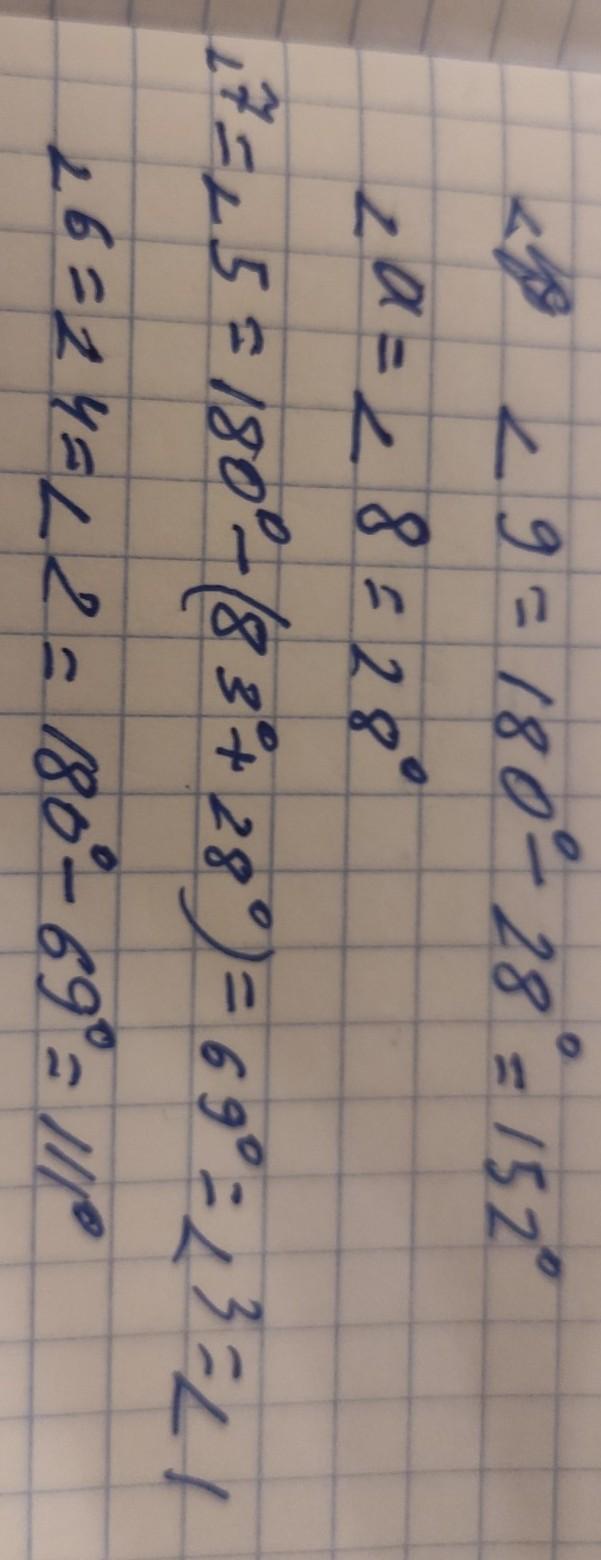 ∠9 = 180° - 28° = 152°
∠α = ∠8 = 28°
∠7 = ∠5 = 180° - (83° + 28°) = 69° = ∠3 = ∠1
∠6 = ∠4 = ∠2 = 180° - 69° = 111°